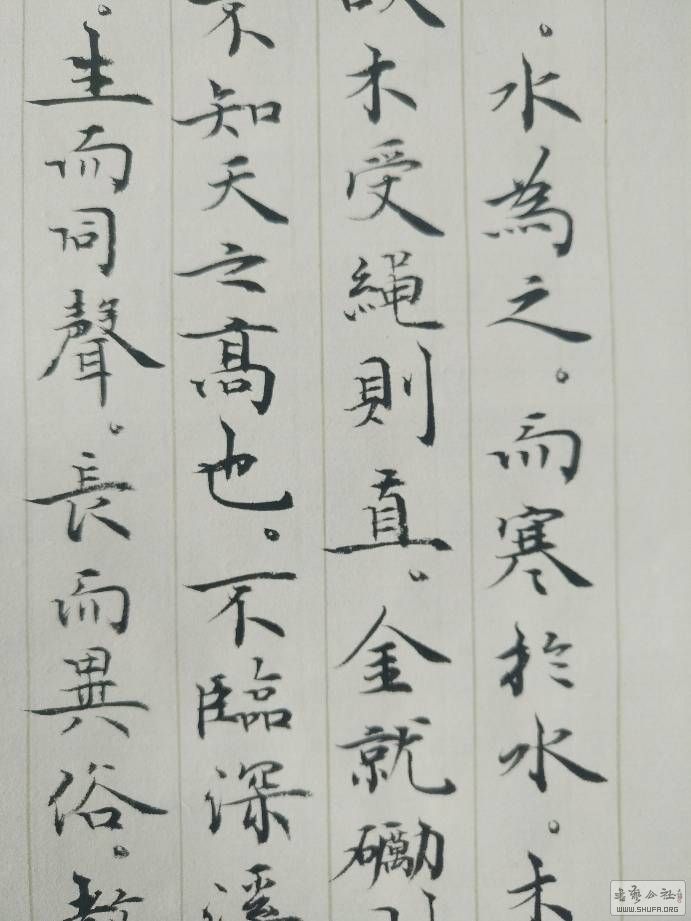 水為之。而寒於水。木
故木受繩則直。金就礪
不知天之高也。不臨深溪
生而同聲。長而異俗。教
書藝公社
WWW.SHUFA.ORG